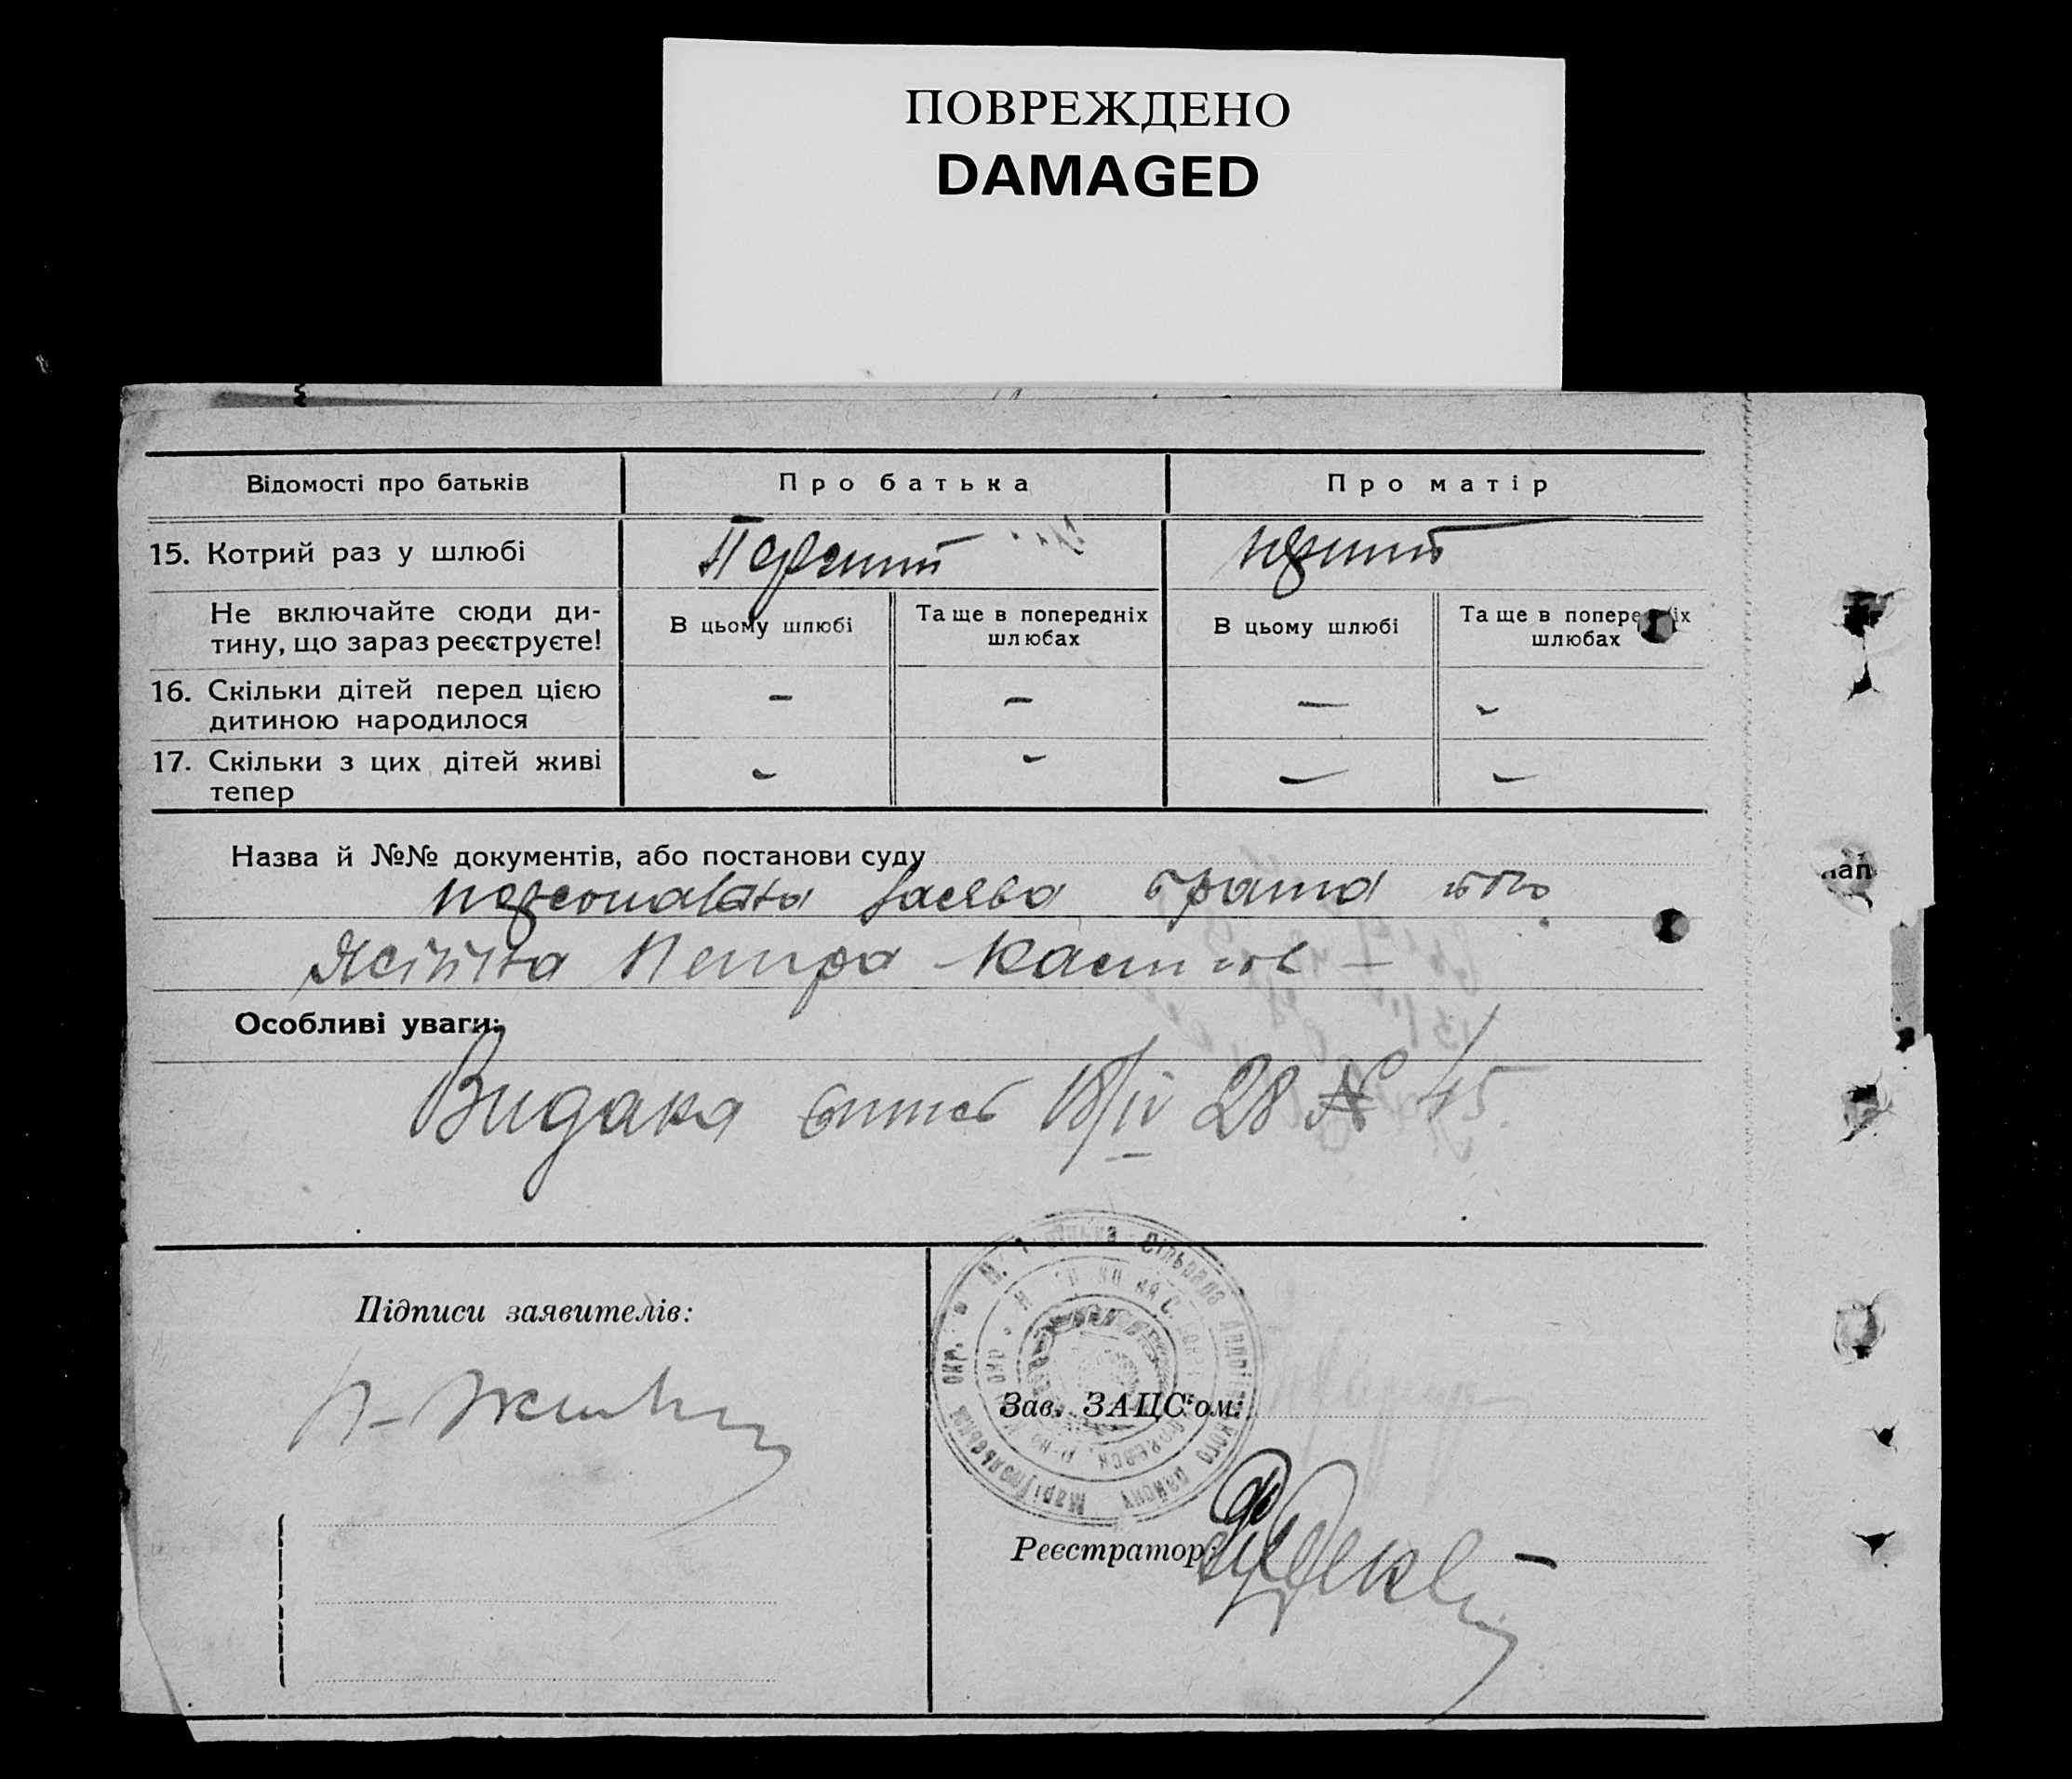 ПОВРЕЖДЕНО
DAMAGED
Відомості про батьків
Про батька
Про матір
15. Котрий раз у шлюбі
Первий
первий
Не включайте сюди ди-
тину, що зараз реєструєте!
В цьому шлюбі
Та ще в попередніх
шлюбах
В цьому шлюбі
Та ще в попере іх
шлюбах
16. Скільки дітей перед цією
дитиною народилося
– – – –
17. Скільки з цих дітей живі
тепер
– – – –
Назва й №№ документів, або постанови суду
персональна заява
Петра
Особливі уваги:
Видана 18/IV 28 № 45
Підписи заявителів:
Зав. ЗАЦС'ом:
Реєстратор:
сільрада
району Маріупольської окр.